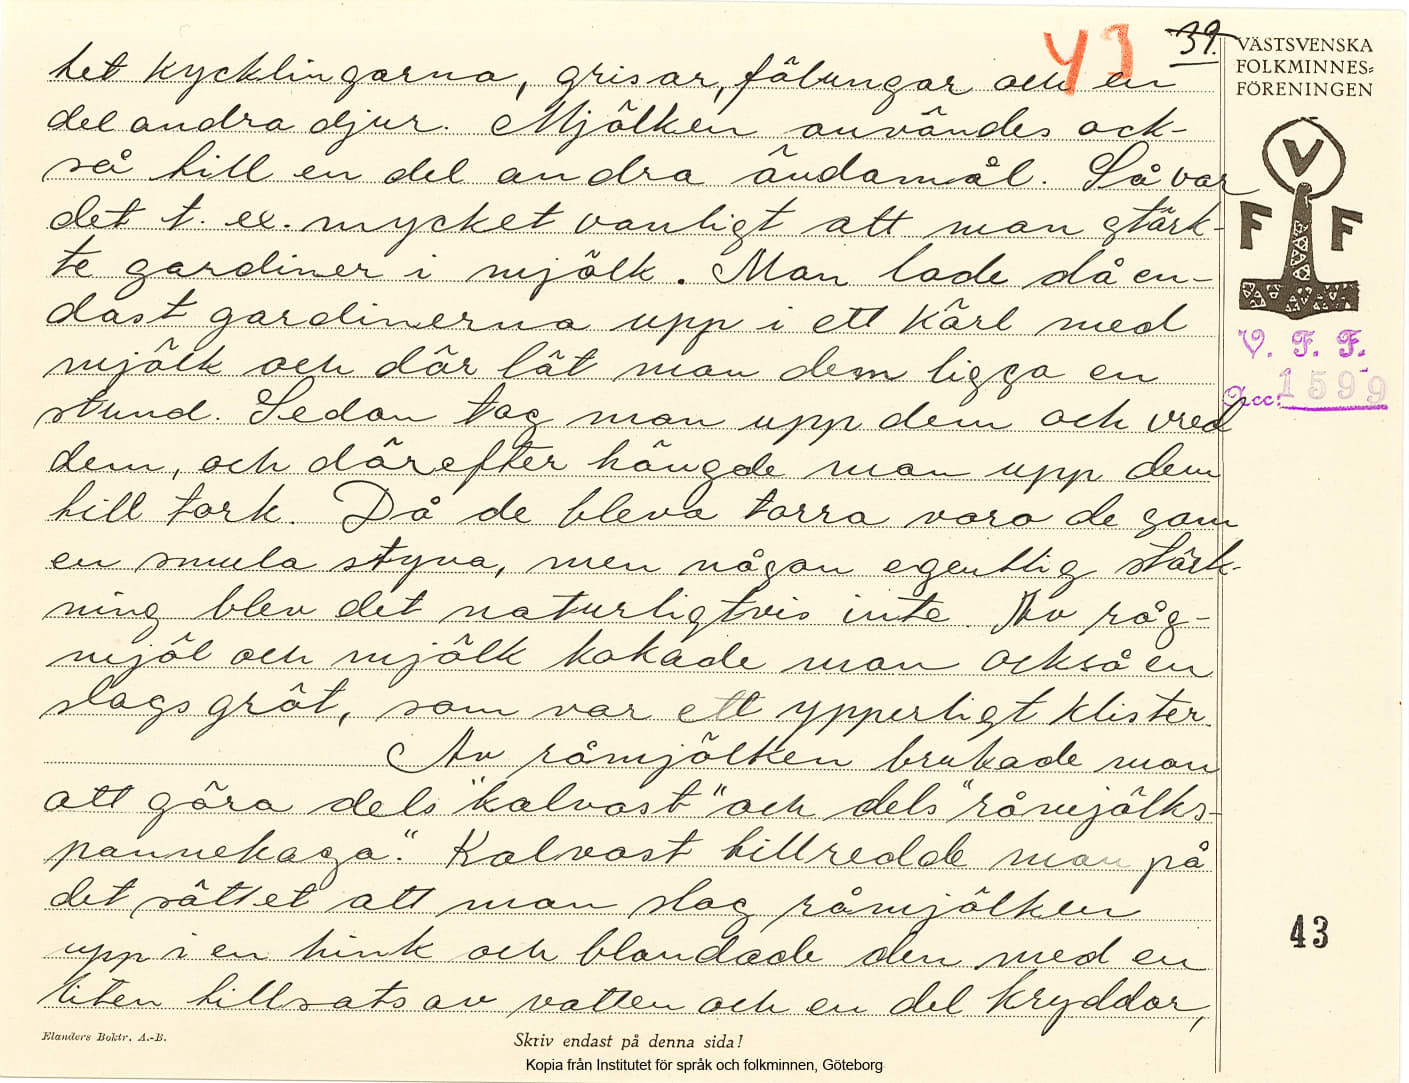 43 39.
VÄSTSVENSKA
FOLKMINNES=
FÖRENINGEN
V
F F
V. F. F.
Acc: 1599
het kycklingarna, grisar, fölungar och en
del andra djur. Mjölken användes ock-
så till en del andra ändamål. Så var
det t. ex. mycket vanligt att man stärk-
te gardiner i mjölk. Man lade då en-
dast gardinerna upp i ett kärl med
mjölk och där lät man dem ligga en
stund. Sedan tog man upp dem och vred
dem, och därefter hängde man upp dem
till tork. Då de bleva torra voro de som
en smula styva, men någon egentlig stärk-
ning blev det naturligtvis inte. Av råg-
mjöl och mjölk kokade man också en
slags gröt, som var ett ypperligt klister.
Av råmjölken brukade man
att göra dels "kalvost" och dels "råmjölks-
pannekaga". Kalvost tillredde man på
det sättet att man slog råmjölken
upp i en hink och blandade den med en
liten tillsats av vatten och en del kryddor,
43
Elanders Boktr. A.-B.
Skriv endast på denna sida!
Kopia från Institutet för språk och folkminnen, Göteborg